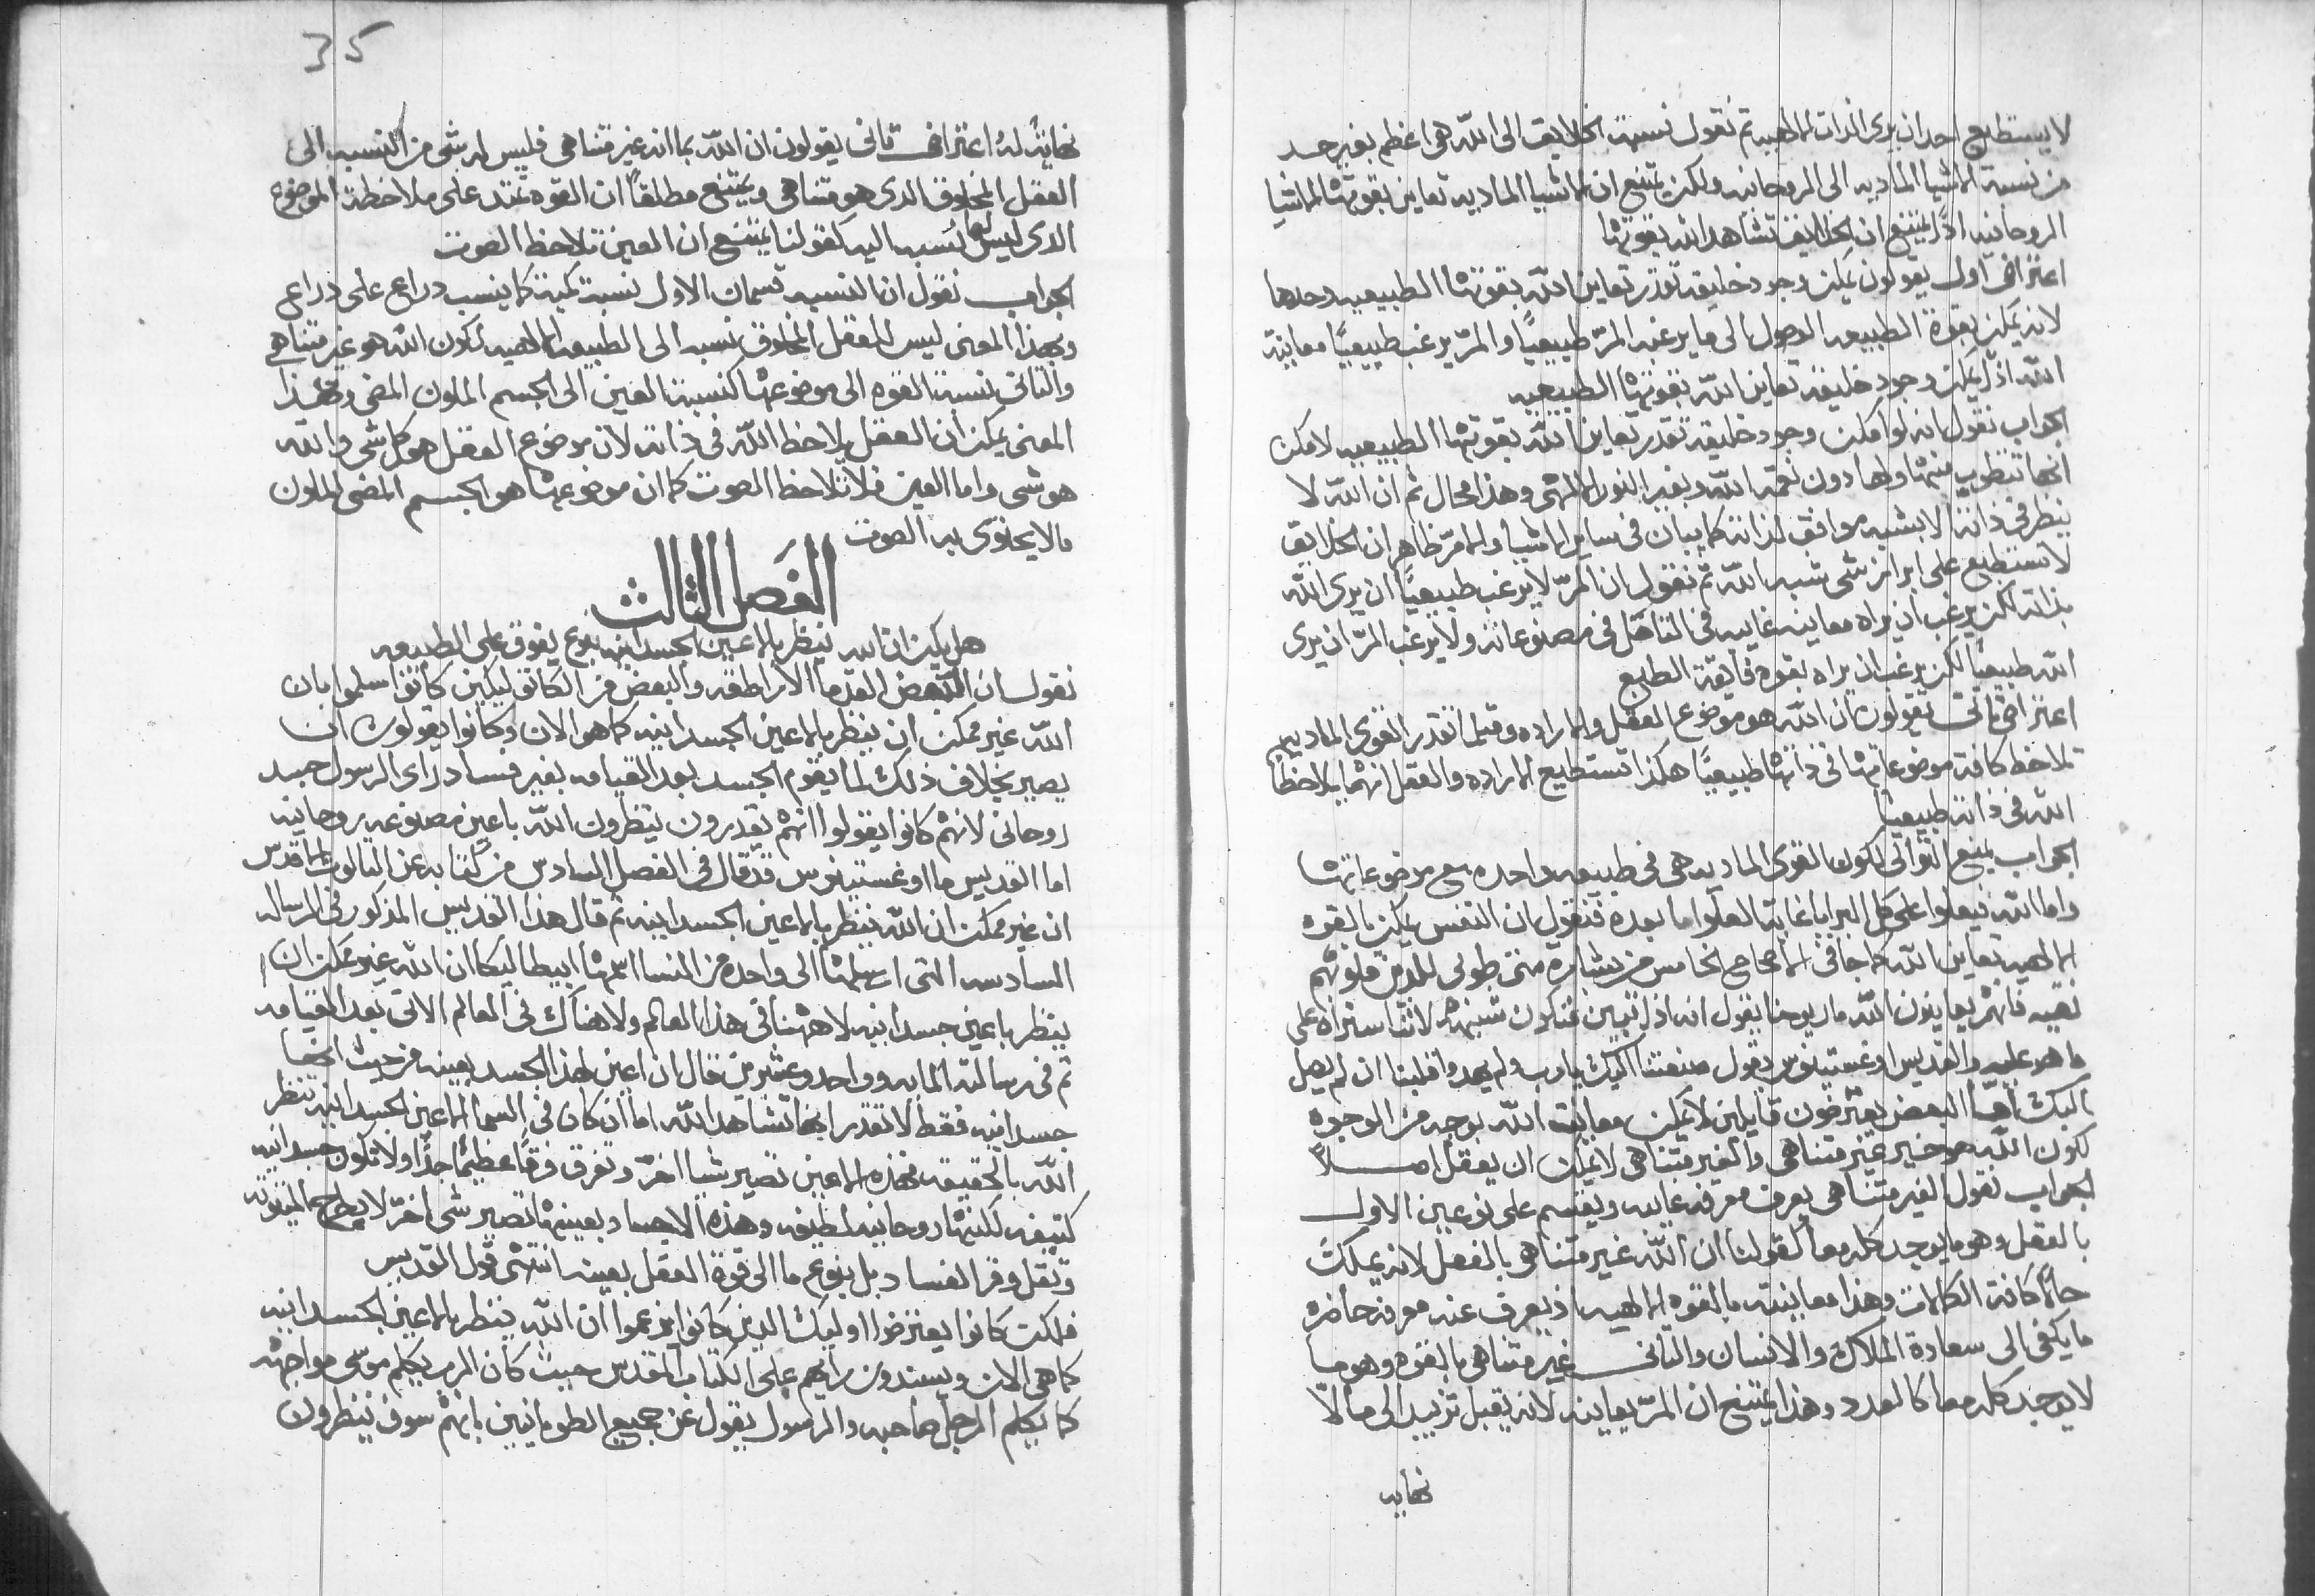 لا يستطيع احد ان يرى الذات الالهيه ثم نقول نسبة الخلايق الى الله هى اعظم بغير حد
من نسبة الاشيا الماديه الى الروحانيه ولكن يمتنع ان الاشيا الماديه تعاين بقوتها الاشيا
الروحانيه اذًا يمتنع ان الخلايق تشاهد الله بقوتها
اعتراض اول يقولون يمكن وجود خليقه تقدر تعاين الله بقوتها الطبيعيه وحدها
لانه يمكن بقوة الطبيعه الوصول الى ما يرغبه المرّ طبيعيًا والمرّ يرغب طبيعيًا معاينة
الله اذًا يمكن وجود خليقه تعاين الله بقوتها الطبيعيه
الجواب نقول انه لو امكن وجود خليقه تقدر تعاين الله بقوتها الطبيعيه لامكن
انها تنطوب منها ولها دون نعمة الله وبغير النور الالهى وهذا محال ثم ان الله لا
ينظر فى ذاته الا بشبه موافق لذاته كما يبان فى ساير الاشيا والامر ظاهر ان الخلايق
لا تستطيع على ابراز شى شبه الله ثم نقول ان المرّ لا يرغب طبيعيًا ان يرى الله
بذاته لكن يرغب ان يراه معاينه غايبه فى التامّل فى مصنوعاته ولا يرغب المرّ ان يرى
الله طبيعيًا لكن يرغب ان يراه بقوه فايقة الطبع
اعتراض ثانى يقولون ان الله هو موضوع العقل والاراده وقتما تقدر القوى الماديه
تلاحظ كافة موضوعاتها فى ذاتها طبيعيًا هكذا تستطيع الاراده والعقل انهما يلاحظا
الله فى ذاته طبيعيًا
الجواب يمنع التوالى لكون القوى الماديه هى فى طبيعه واحده مع موضوعاتها
واما الله فيعلوا على كل البرايا غاية العلو اما بعده فنقول ان النفس يمكن بالقوه
الالهيه تعاين الله كما جا فى الاصحاح الخامس من بشارة متى طوبى للمدين قلوبهم
نقيه فانهم يعاينون الله مار يوحنا يقول انه اذا تبين فنكون شبهه لاننا سنراه على
ما هو عليه والقديس اوغستينوس يقول صنعتنا اليك يا رب ولم يهدوا قلبنا ان لم يصل
اليك اما البعض يعترضون قايلين لا يمكن معاينة الله بوجه من الوجوه
لكون الله هو خير غير متناهى والغير متناهى لا يمكن ان يعقل اصلاً
الجواب نقول الغير متناهى يعرف معرفه غايبه وينقسم على نوعين الاول
بالعقل وهو ما يوجد كله معاً كقولنا ان الله غير متناهى بالفعل لانه يملك
حالاً كافة الكمالات وهذا معاينته بالقوه الالهيه اذ يعرف عنه معرفه حاضره
ما يكفى الى سعادة الملاك والانسان والثانى غير متناهى بالقوه وهو ما
لا يوجد كله معا كالعدد وهذا يمتنع ان المرّ يعاينه لانه يقبل تزييد الى ما لا
نهايه
35
نهاية له اعتراض ثانى يقولون ان الله بما انه غير متناهى فليس له شى من النسبه الى
العقل المخلوق الذى هو متناهى ويمتنع مطلقاً ان القوه تمتد على ملاحظة الموضوع
الذى ليس لها نسبه اليه كقولنا يمتنع ان العين تلاحظ الصوت
الجواب نقول ان النسبه قسمان الاول نسبة كمية كما ينسب دراع على دراع
وبهذا المعنى ليس للعقل المخلوق نسبه الى الطبيعه الالهيه لكون الله هو غير متناهى
والثانى نسبة القوه الى موضوعها كنسبة العين الى الجسم الملون المضى وبهذا
المعنى يمكن ان العقل يلاحظ الله فى ذاته لان موضوع العقل هو كل شى والله
هو شى واما العين فلا تلاحظ الصوت كما ان موضوعها هو الجسم المضى الملون
ما لا يحتوى به الصوت
الفصل الثالث
هل يمكن ان الله ينظر بالاعين الجسدانيه بنوع يفوق على الطبيعه
نقول ان البعض القدما الاراطقه والبعض من الكاتوليكين كانوا سلموا بان
الله غير ممكن ان ينظر بالاعين الجسدانيه كما هو الان وكانوا يقولون ان
يصير بخلاف ذلك لما يقوم الجسد بعد القيامه بغير فساد راى الرسول جسد
روحانى لانهم كانوا يقولوا انهم يقدرون ينظرون الله باعين مصنوعه روحانيه
اما القديس ما اوغستينوس قد قال فى الفصل السادس من كتابه عن التالوت الاقدس
ان غير ممكن ان الله ينظر بالاعين الجسدانيه ثم قال هذا القديس المذكور فى الرساله
السادسه التى ارسلها الى واحده من النسا اسمها ايبطاليكا ان الله غير ممكن ان
ينظر باعين جسدانيه لا ههنا فى هذا العالم ولا هناك فى العالم الاتى بعد القيامه
ثم فى رسالته المايه وواحد وعشرين قال ان اعين لهذا الجسد بعينه من حيث انها
جسدانيه فقط لا تقدر انها تشاهد الله اما ان كان فى السما الاعين الجسدانيه تنظر
الله بالحقيقه فهذه الاعين تصير شيا اخرّ وتفرق فرقًا عظيمًا جدًا ولا تكون جسدانيه
كتيفه لكنها روحانيه لطيفه وهذه الاجساد بعينها تصير شى اخرّ لا بطرحها المتوته
وثقل وقر الفساد بل بنوع ما الى قوة العقل بعينه انتهى قول القديس
فلكت كانوا يعترضوا اوليك الدين كانوا يزعموا ان الله ينظر بالاعين الجسدانيه
كما هى الان ويسندون رايهم على الكتاب المقدس حيث كان الرب يكلم موسى مواجهه
كما يكلم الرجل صاحبه والرسول يقول عن جميع الطوبانيين بانهم سوف ينظرون